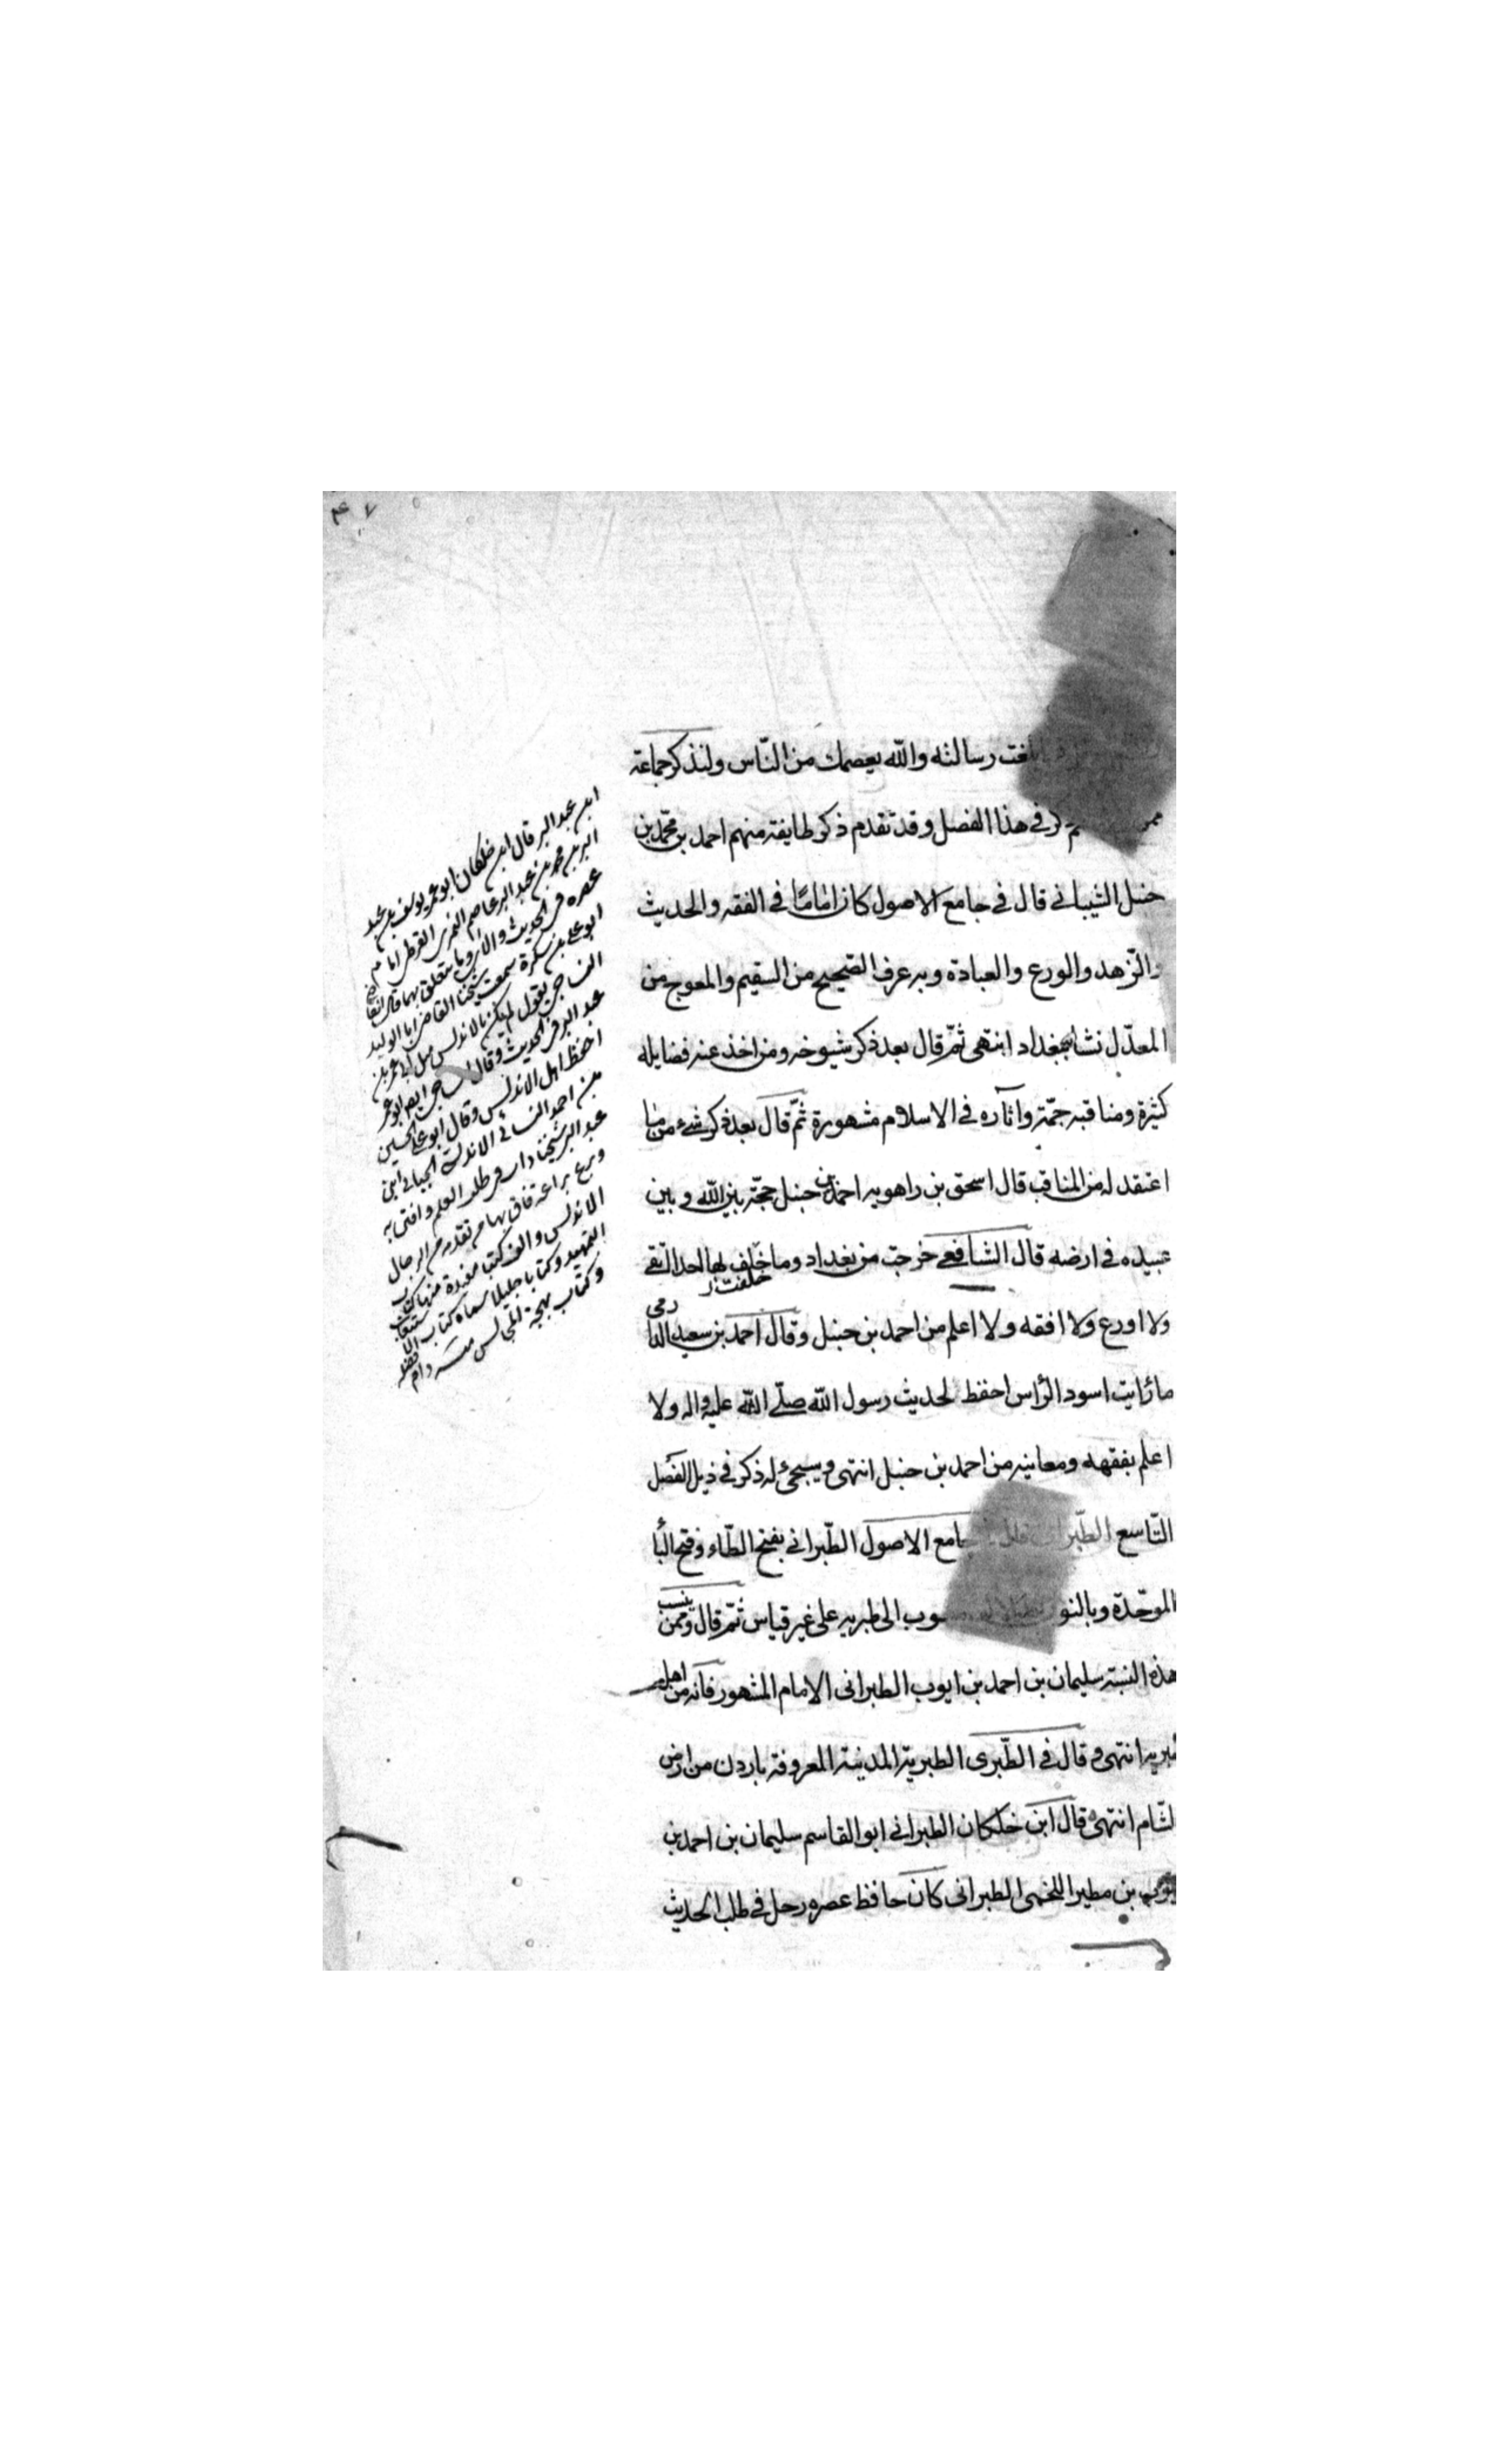 بلغت رسالته والله يعصمك من النّاس ولنذكر جماعة
في هذا الفصل وقد تقدم ذكر طايفة منهم احمد بن محمّد بن
حنبل الشيباني قال في جامع الاصول كان امامًا في الفقه والحديث
والزّهد والورع والعبادة وبه عرف الصّحيح من السقيم والمعوج من
المعدّل نشا ببغداد انتهى ثمّ قال بعد ذكر شيوخه ومن اخذ عنه فضايله
كثيرة ومناقبه جمّة وآثاره في الاسلام مشهورة ثمّ قال بعد ذكر شئ من ما
اعتقد له من المناقب قال اسحق بن راهويه احمد بن حنبل حجّة بين الله وبين
عبيده في ارضه قال الشافعي خرجت من بغداد وما خلف بها احدا اتقى
خلفت
ولا اورع ولا افقه ولا اعلم من احمد بن حنبل وقال احمد بن سعيد الدارمى
ما رايت اسود الرّأس احفظ لحديث رسول الله صلّى الله عليه واله ولا
اعلم بفقهه ومعانيه من احمد بن حنبل انتهى وسيجئ له ذكر في ذيل الفصل
التّاسع الطّبرانى قال في جامع الاصول الطّبراني بفتح الطّاء وفتح البا
الموحّدة وبالنون منسوب الى طبريه على غير قياس ثمّ قال وممّن ينسب
هذه النسبة سليمان بن احمد بن ايوب الطبرانى الامام المشهور فانه من اهل
طبريه انتهى وقال في الطّبرى الطبرية المدينة المعروفة باردن من ارض
الشّام انتهى قال ابن خلكان الطبراني ابو القاسم سليمان بن احمد بن
ايوب بن مطير اللخمى الطبرانى كان حافظ عصره رحل في طلب الحديث
ابن عبد البر قال ابن خلكان ابو عمر يوسف بن عبد
البر بن محمد بن عبد البر عاصم النمرى القرطبى امام
عصره فى الحديث والاثر وما يتعلق بهما قال القاضى
ابو على بن سكرة سمعت شيخنا القاضى ابا الوليد
الباجى يقول لم يكن بالاندلس مثل ابى عمر بن
عبد البر فى الحديث وقال الباجى ايضا ابو عمر
احفظ اهل الاندلس وقال ابو على الحسين
بن احمد الغسانى الاندلسى الجيانى ابن
عبد البر شيخنا داب فى طلب العلم وافتى به
وبرع براعة فاق بها من تقدمه من رجال
الاندلس والف كتبا مفيدة منها كتاب
التمهيد وكتابا جليلا سماه كتاب الاستيعاب
وكتاب بهجة المجالس